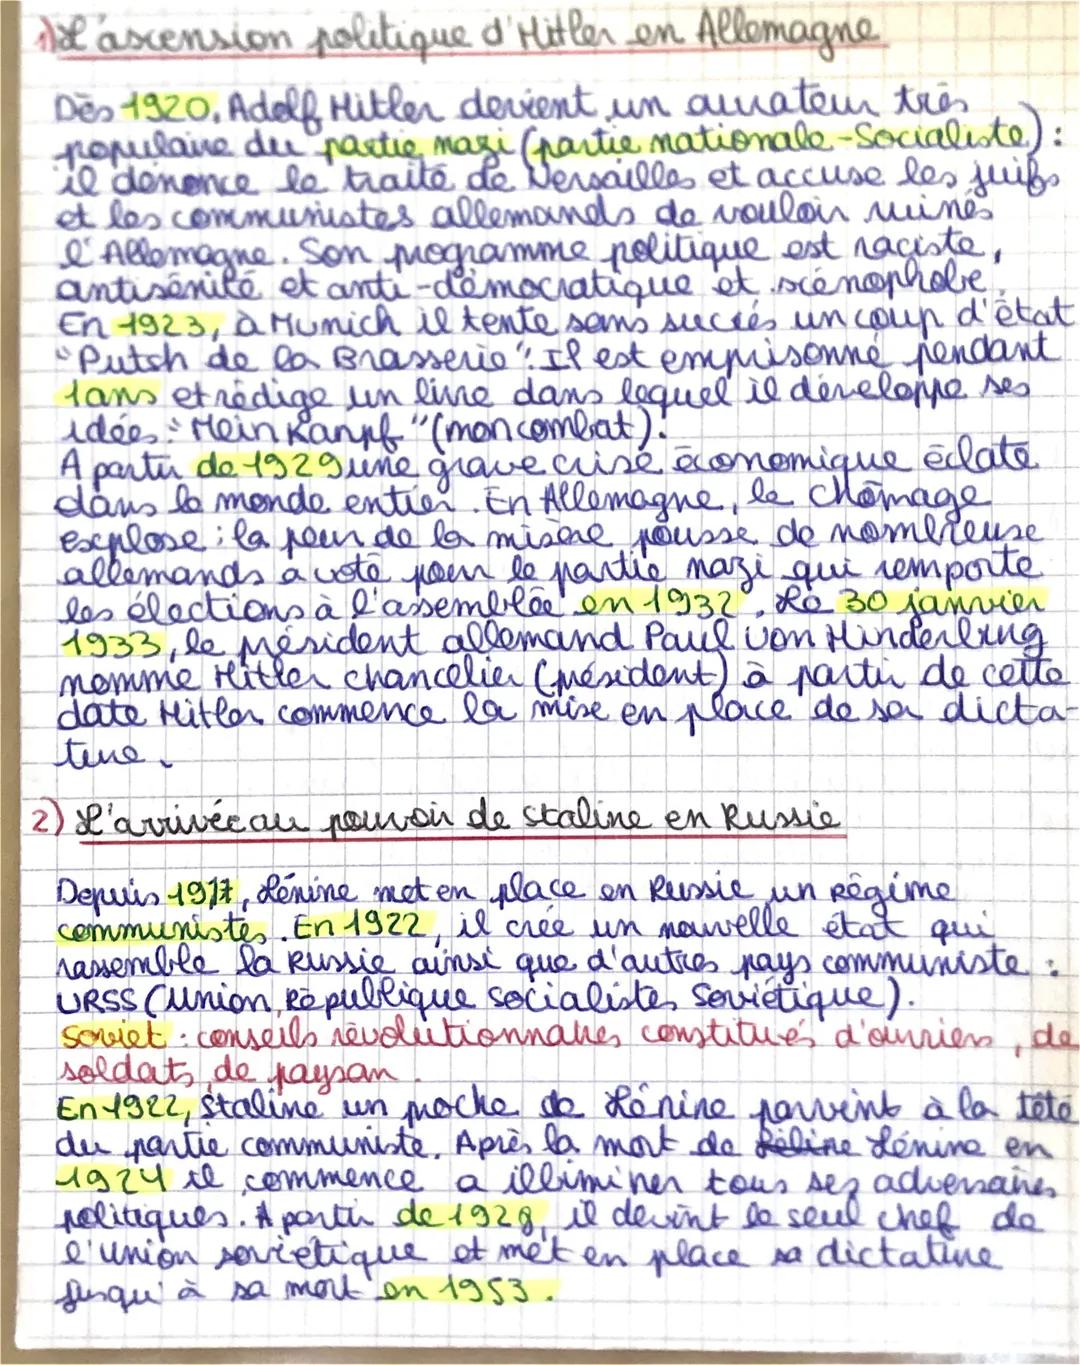 1) L'ascension politique d'Hitler en Allemagne
Dès 1920, Adolf Hitler devient un aurateur très
populaire du partie nazi (partie nationale-Socialiste) :
il dénonce le traité de Versailles et accuse les juifs
et les communistes allemands de vouloir ruinés
l'Allemagne. Son programme politique est raciste,
antisénité et anti-démocratique et scénophobe.
En 1923, à Munich il tente sans succès un coup d'état
"Putsh de la Brasserie". Il est emprisonné pendant
1ans et rédige un livre dans lequel il développe ses
idées : Mein Kanpf "(mon combat).
A partir de 1929 une grave crise économique éclate
dans le monde entier. En Allemagne, le chômage
explose ; la peur de la misère pousse de nombreuse
allemands a voté pour le partie nazi qui remporte
les élections à l'assemblée en 1932. Le 30 janvier
1933, le président allemand Paul von Hinderbung
nomme Hitler chancelier (président) à partir de cette
date Hitler commence la mise en place de sa dicta-
ture.
2) L'arrivée au pouvoir de staline en Russie
Depuis 1917, Lénine met en place en Russie un régime
communistes. En 1922, il crée un nouvelle état qui
rassemble la Russie ainsi que d'autres pays communiste :
URSS (Union République Socialistes Soviétique).
Soviet : conseils révolutionnaires constitués d'ouvriers, de
soldats, de paysan.
En 1922, Staline un proche de Lénine parvint à la tête
du partie communiste. Après la mort de Lénine en
1924 il commence a illiminer tous ses adversaires
politiques. A partir de 1928, il devint le seul chef de
l'union soviétique et met en place sa dictature
jusqu'à sa mort en 1953.